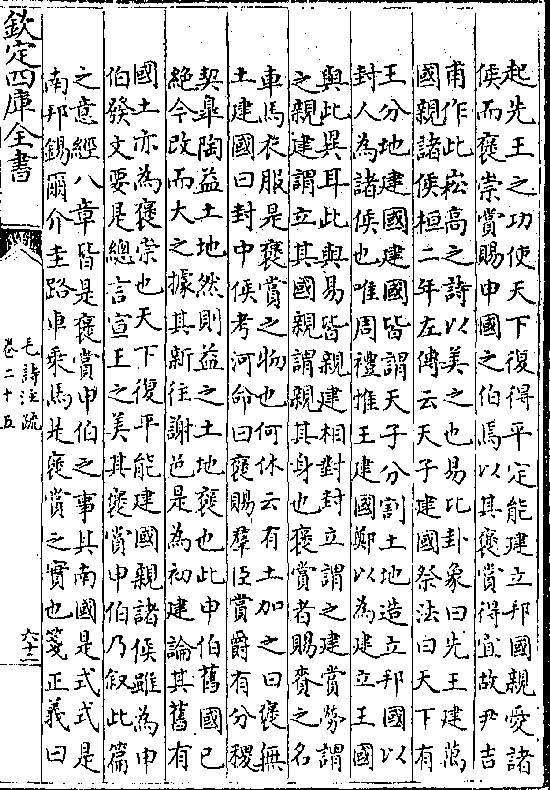 起先王之功使天下復得平定能建立邦國親愛諸
侯而褒崇賞賜申國之伯焉以其褒賞得宜故尹吉
甫作此崧高之詩以美之也易比卦象曰先王建萬
國親諸侯桓二年左傳云天子建國祭法曰天下有
王分地建國建國皆謂天子分割土地造立邦國以
封人為諸侯也唯周禮惟王建國鄭以為建立王國
與此異耳此與易皆親建相對封立謂之建賞勞謂
之親建謂立其國親謂親其身也褒賞者賜賚之名
車馬衣服是褒賞之物也何休云有土加之曰褒無
土建國曰封中候考河命曰褒賜羣臣賞爵有分稷
契臯陶益土地然則益之土地褒也此申伯舊國已
絶今改而大之據其新往謝邑是為初建論其舊有
國土亦為褒崇也天下復平能建國親諸侯雖為申
伯發文要是總言宣王之美其褒賞申伯乃叙此篇
之意經八章皆是褒賞申伯之事其南國是式式是
南邦錫爾介圭路車乘馬是褒賞之實也箋正義曰
欽定四庫全書
毛詩注疏
卷二十五